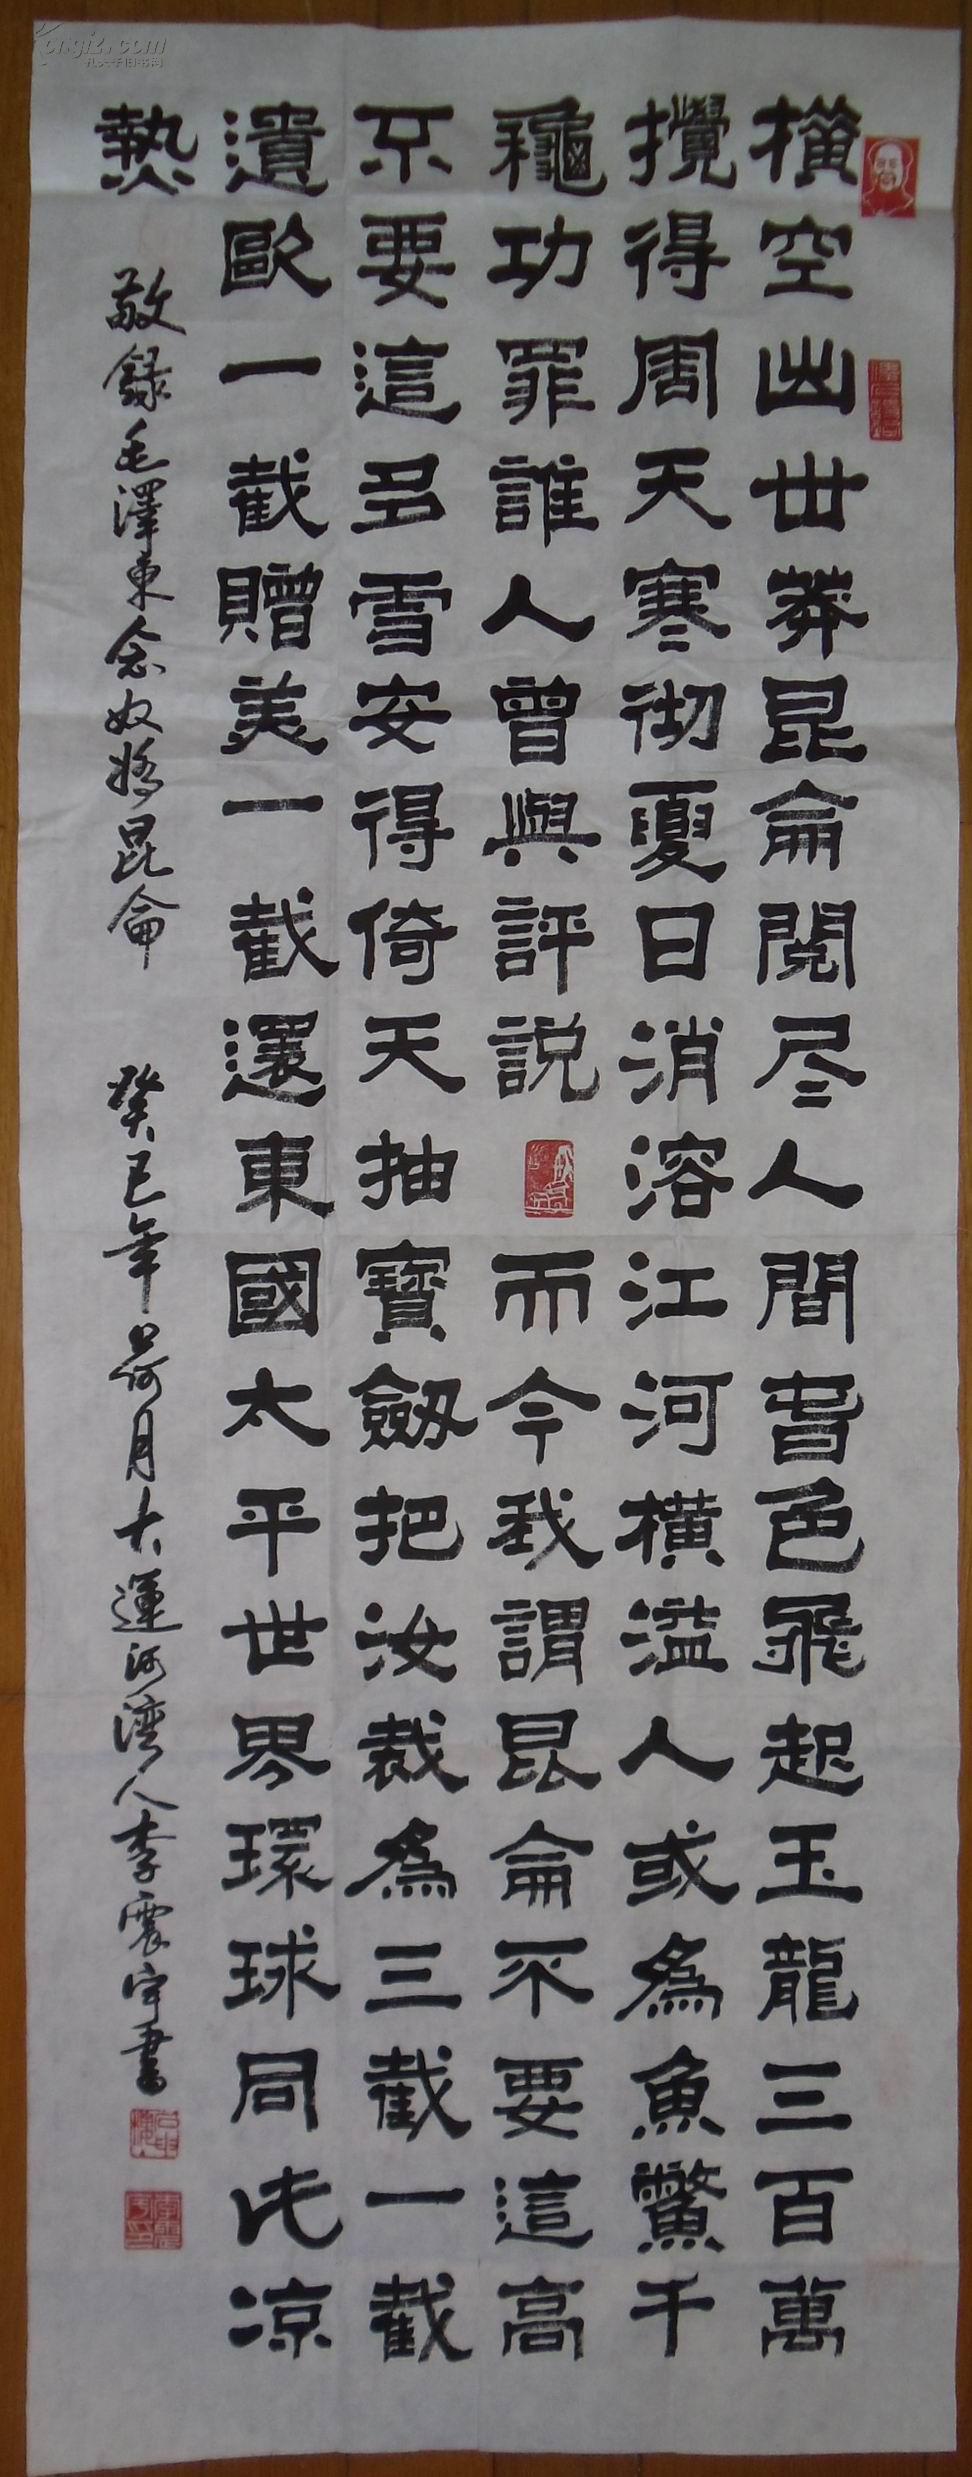 横空出世莽昆侖閱尽人間春色飛起玉龍三百萬
攪得周天寒彻夏日消溶江河橫溢人或為魚鱉千
龝功罪誰人曾與評說而今我謂昆侖不要這高
不要這多雪安得倚天抽寶劔把汝裁為三截一截
遺歐一截贈美一截還東國太平世界環球同此凉
熱
敬錄毛澤東念奴嬌昆侖
癸巳年荷月大運河湾人李震宇書